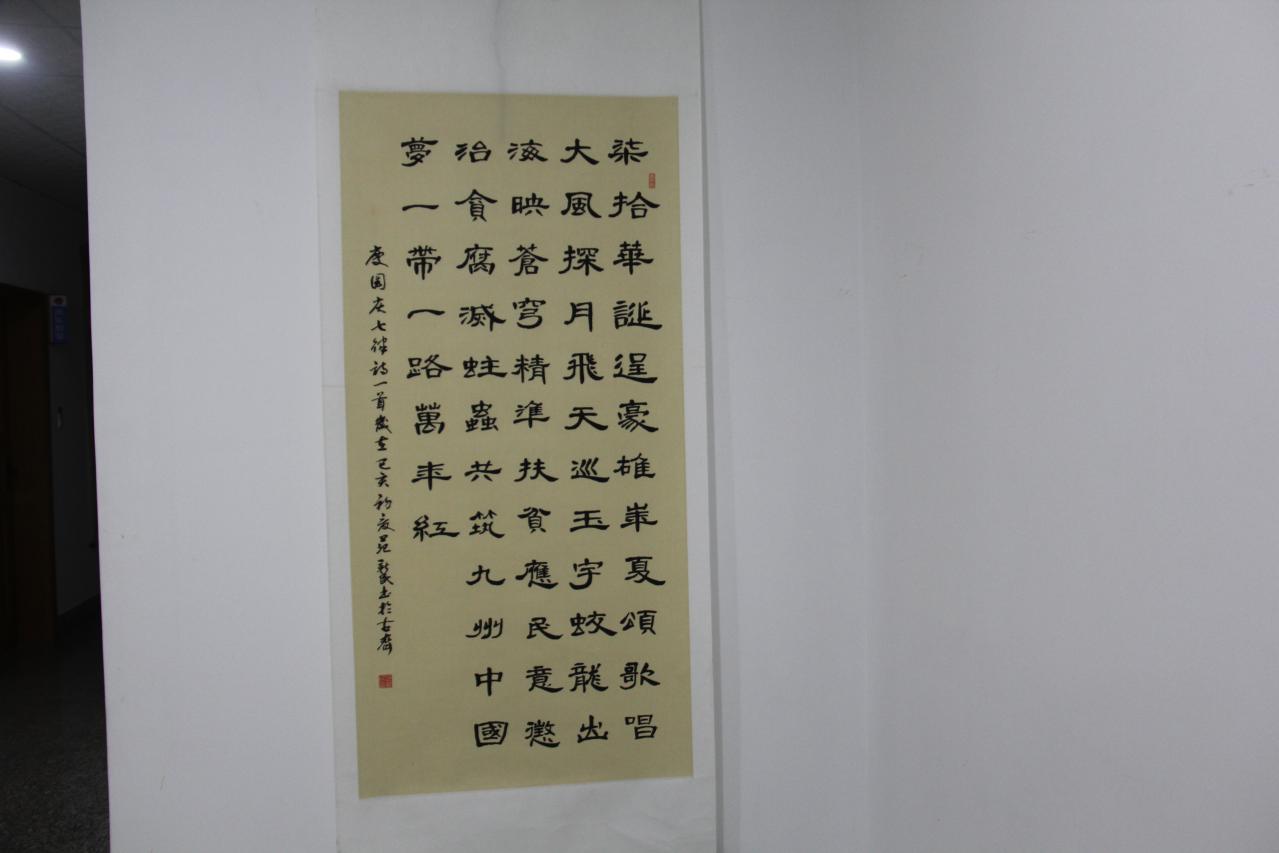 柒拾華誕逞豪雄華夏頌歌唱
大風探月飛天巡玉宇蛟龍出
海映蒼穹精準扶貧應民意懲
治貪腐滅蛀蟲共筑九州中國
夢一帶一路萬年紅
慶國庆七律詩一首歲在己亥初夏昆新民書於古齊